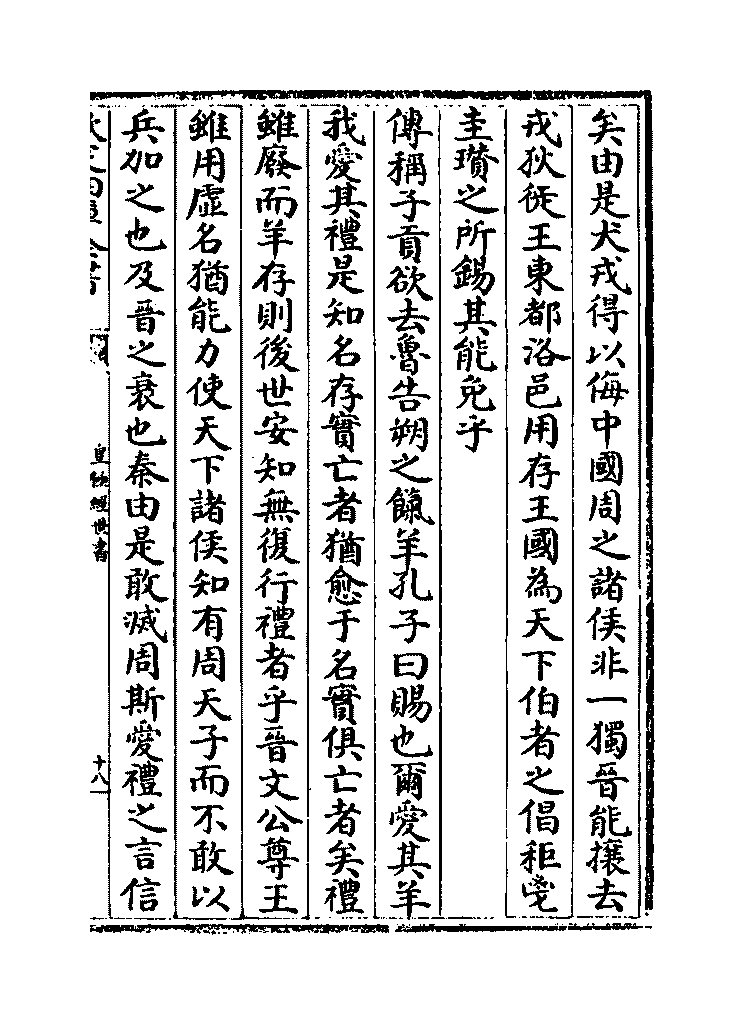 矣由是犬戎得以侮中國周之諸侯非一獨晉能攘去
戎狄徙王東都洛邑用存王國為天下伯者之倡秬鬯
圭瓚之所錫其能免乎
傳稱子貢欲去魯告朔之餼羊孔子曰賜也爾愛其羊
我愛其禮是知名存實亡者猶愈于名實俱亡者矣禮
雖廢而羊存則後世安知無復行禮者乎晉文公尊王
雖用虛名猶能力使天下諸侯知有周天子而不敢以
兵加之也及晉之衰也秦由是敢滅周斯愛禮之言信
皇極經世書
十八